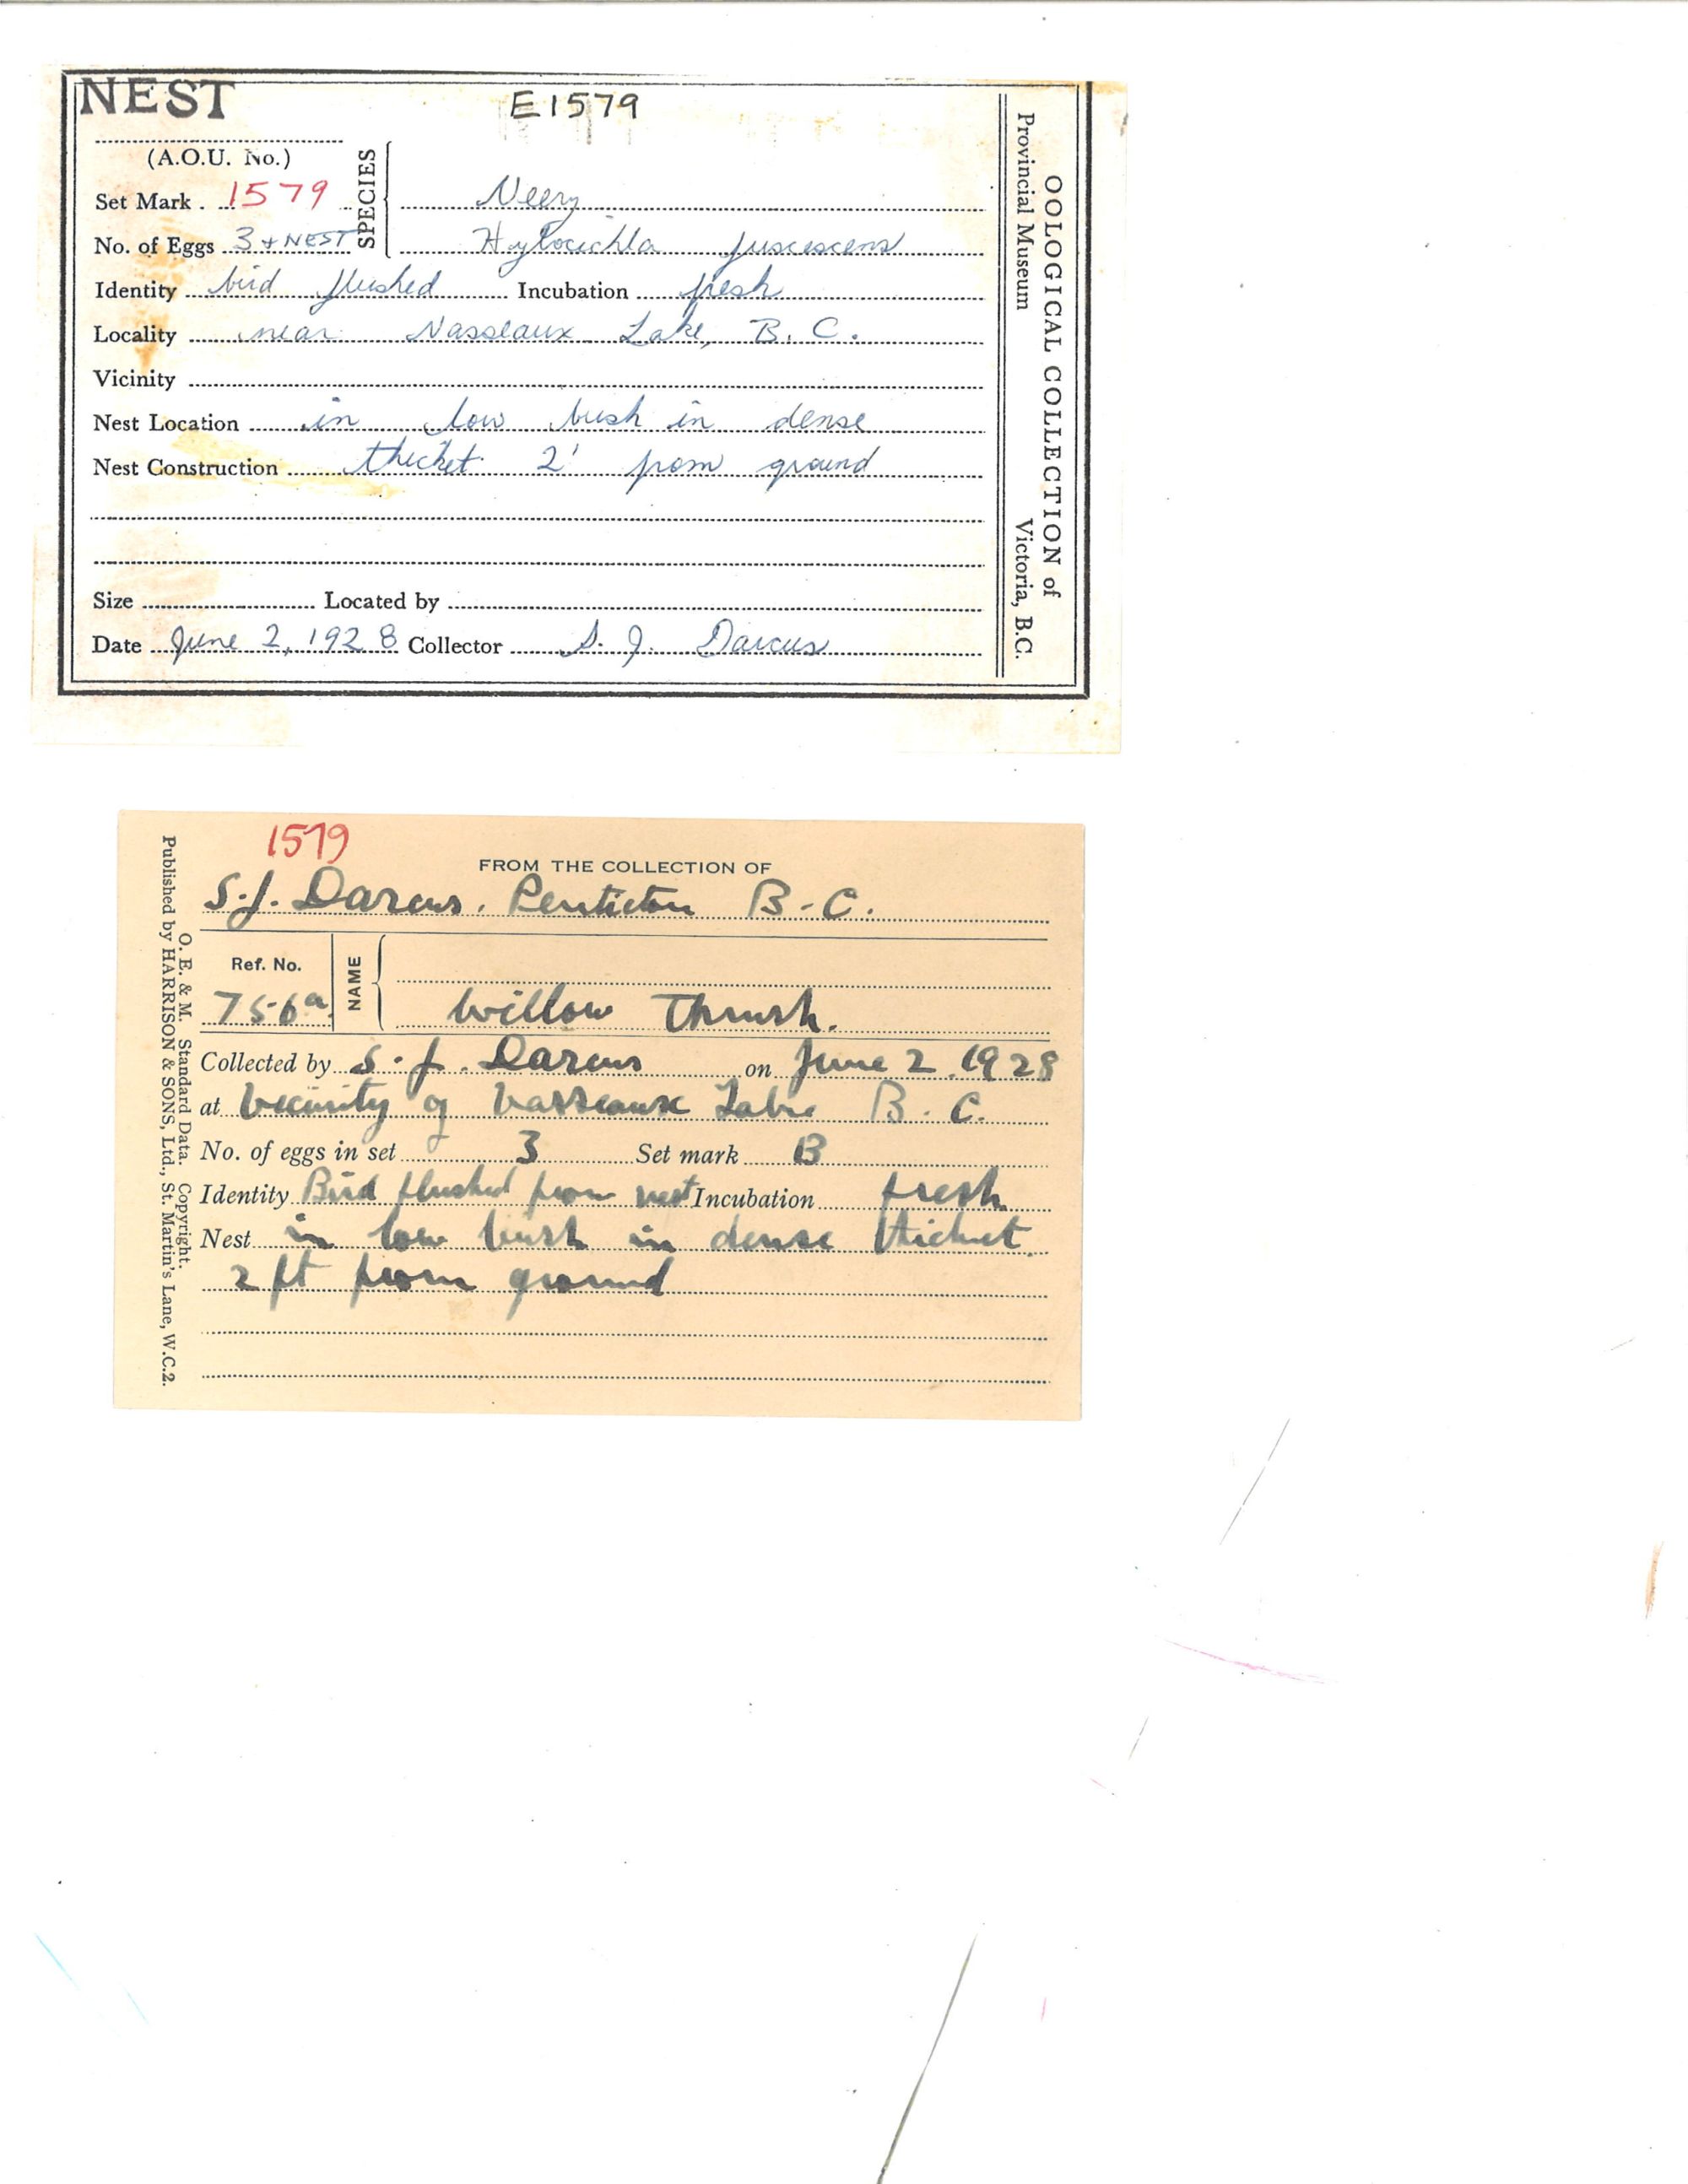 NEST
E1579
(A.O.U. No.)
SPECIES
Set Mark . 1579 Veery
No. of Eggs 3 + NEST Hylocichla fuscescens
Identity bird flushed Incubation fresh
Locality near Vasseaux Lake, B. C.
Vicinity
Nest Location in low bush in dense
Nest Construction thicket 2' from ground
Size Located by
Date June 2, 1928 Collector S. J. Darcus
OOLOGICAL COLLECTION of
Provincial Museum Victoria, B.C.
1579
FROM THE COLLECTION OF
S.J. Darcus. Penticton B-C.
Ref. No. NAME
756a Willow Thrush.
Collected by S. J. Darcus on June 2. 1928
at Vecinity of Vasseaux Lake B. C.
No. of eggs in set 3 Set mark B
Identity Bird flushed from nest Incubation fresh
Nest in low bush in dense thicket.
2 ft from ground
O. E. & M. Standard Data. Copyright.
Published by HARRISON & SONS, Ltd., St. Martin's Lane, W.C.2.